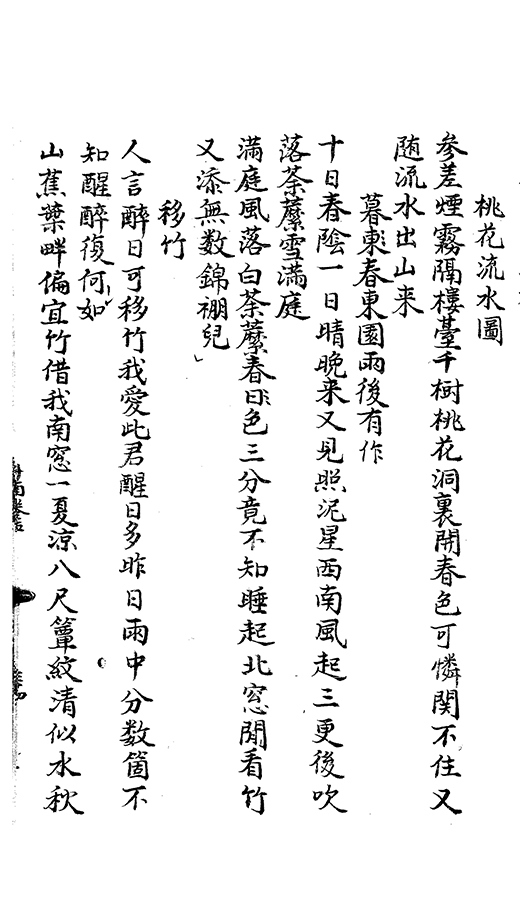 桃花流水圖
参差煙霧隔樓䑓千树桃花洞裏開春色可憐関不住又
随流水出山来
暮春東園雨後有作
十日春陰一日晴晩来又見照泥星西南風起三更後吹
落荼蘼雪滿庭
滿庭風落白荼蘼春色三分竟不知睡起北窓閒看竹
又添無数錦裯兒
移竹
人言醉日可移竹我愛此君醒日多昨日雨中分数箇不
知醒醉復何如
山蕉葉畔偏宜竹借我南窓一夏涼八尺簟紋清似水秋